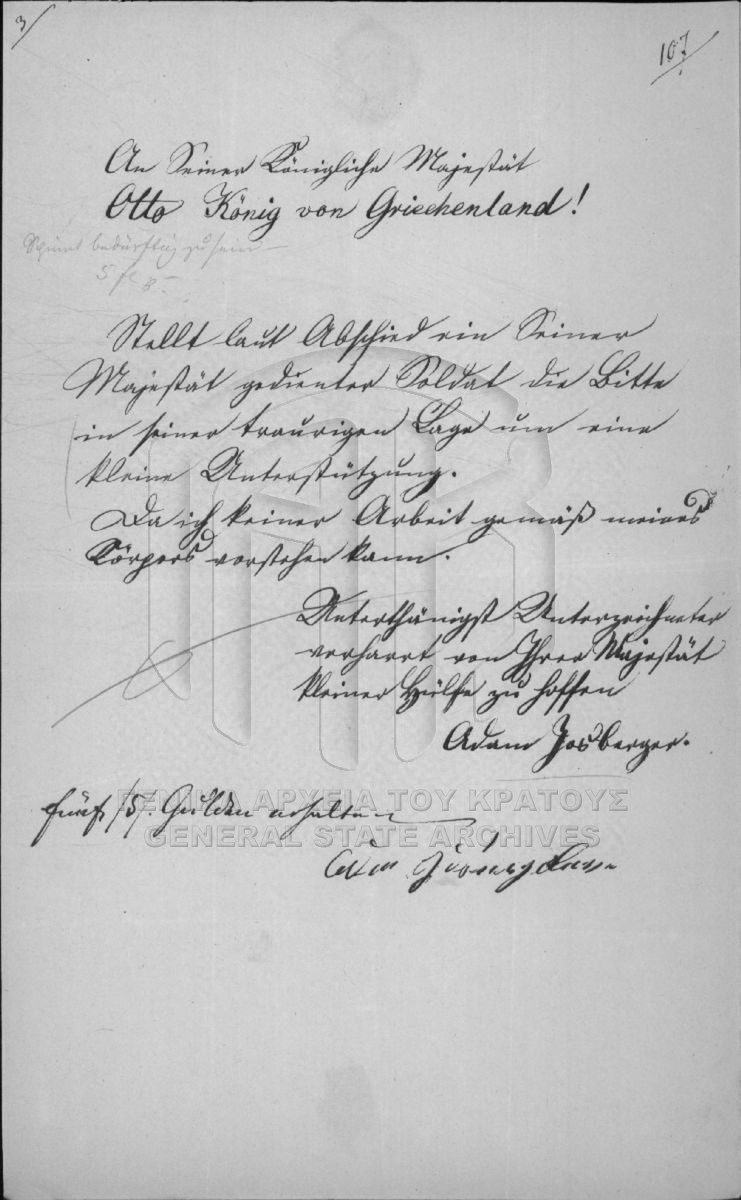 3
107
An Seiner Königliche Majestät
Otto König von Griechenland!
Scheint bedürftig zu sein
5 fl
Stellt laut Abschied ein Seiner
Majestät gedienter Soldat die Bitte
in seiner traurigen Lage um eine
kleine Unterstützung.
Da ich keiner Arbeit gemäß meines
Körpers vorstehen kann.
Unterthänigst Unterzeichneter
verharrt von Ihrer Majestät
kleiner Hülfe zu hoffen
Adam Josberger.
ΓΕΝΙΚΑ ΑΡΧΕΙΑ ΤΟΥ ΚΡΑΤΟΥΣ
fünf /5/. Gulden erhalten
GENERAL STATE ARCHIVES